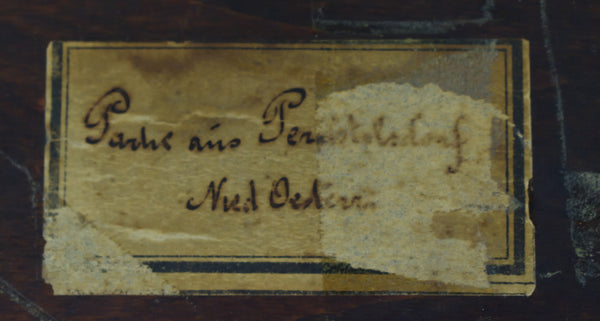 Partie aus Perchtoldsdorf
Nied Oesterr.